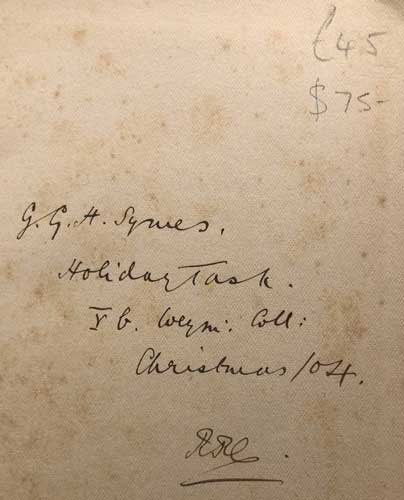 £45
$75-
G. G. H. Symes.
Holiday Task.
V b. Weym: Coll:
Christmas /04.